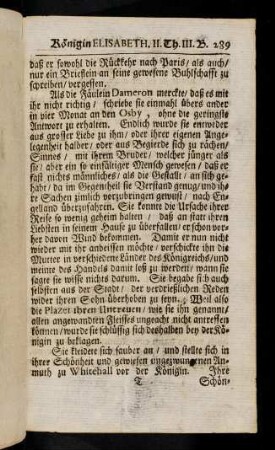 Königin ELISABETH. II. Th. III. B. 289
daß er sowohl die Rückkehr nach Paris/ als auch/
nur ein Brieflein an seine gewesene Buhlschafft zu
schreiben/ vergessen.
Als die Fäulein Dameron merckte/ daß es mit
ihr nicht richtig/ schriebe sie einmahl übers ander
in vier Monat an den Osby, ohne die geringste
Antwort zu erhalten. Endlich wurde sie entweder
aus grosser Liebe zu ihm/ oder ihrer eigenen Ange-
legenheit halber/ oder aus Begierde sich zu rächen/
Sinnes/ mit ihrem Bruder/ welcher jünger als
sie/ aber ein so einfältiger Mensch gewesen/ daß er
fast nichts männliches/ als die Gestalt/ an sich ge-
habt/ da im Gegentheil sie Verstand genug/ und ih-
re Sachen zimlich vorzubringen gewust/ nach En-
gelland überzufahren. Sie konnte die Ursache ihres
Reise so wenig geheim halten/ daß an statt ihren
Liebsten in seinem Hause zu überfallen/ er schon vor-
her davor Wind bekommen. Damit er nun nicht
wieder mit ihr anbeissen möchte/ verschickte ihn die
Mutter in verschiedene Länder des Königreichs/ und
weinte des Handels damit loß zu werden/ wann sie
sagte sie wisse nichts darum. Sie begabe sich auch
selbsten aus der Stadt/ der verdrießlichen Reden
wider ihren Sohn überhoben zu seyn. Weil also
die Plazer ihren Untreuen/ wie sie ihn genannt/
allen angewandten Fleisses ungeacht nicht antreffen
können/ wurde sie schlüssig sich deshalben bey der Kö-
nigin zu beklagen.
Sie kleidete sich sauber an/ und stellte sich in
ihrer Schönheit und gewissen ungezwungenen An-
muth zu Whitehall vor der Königin. Ihre
T Schön-